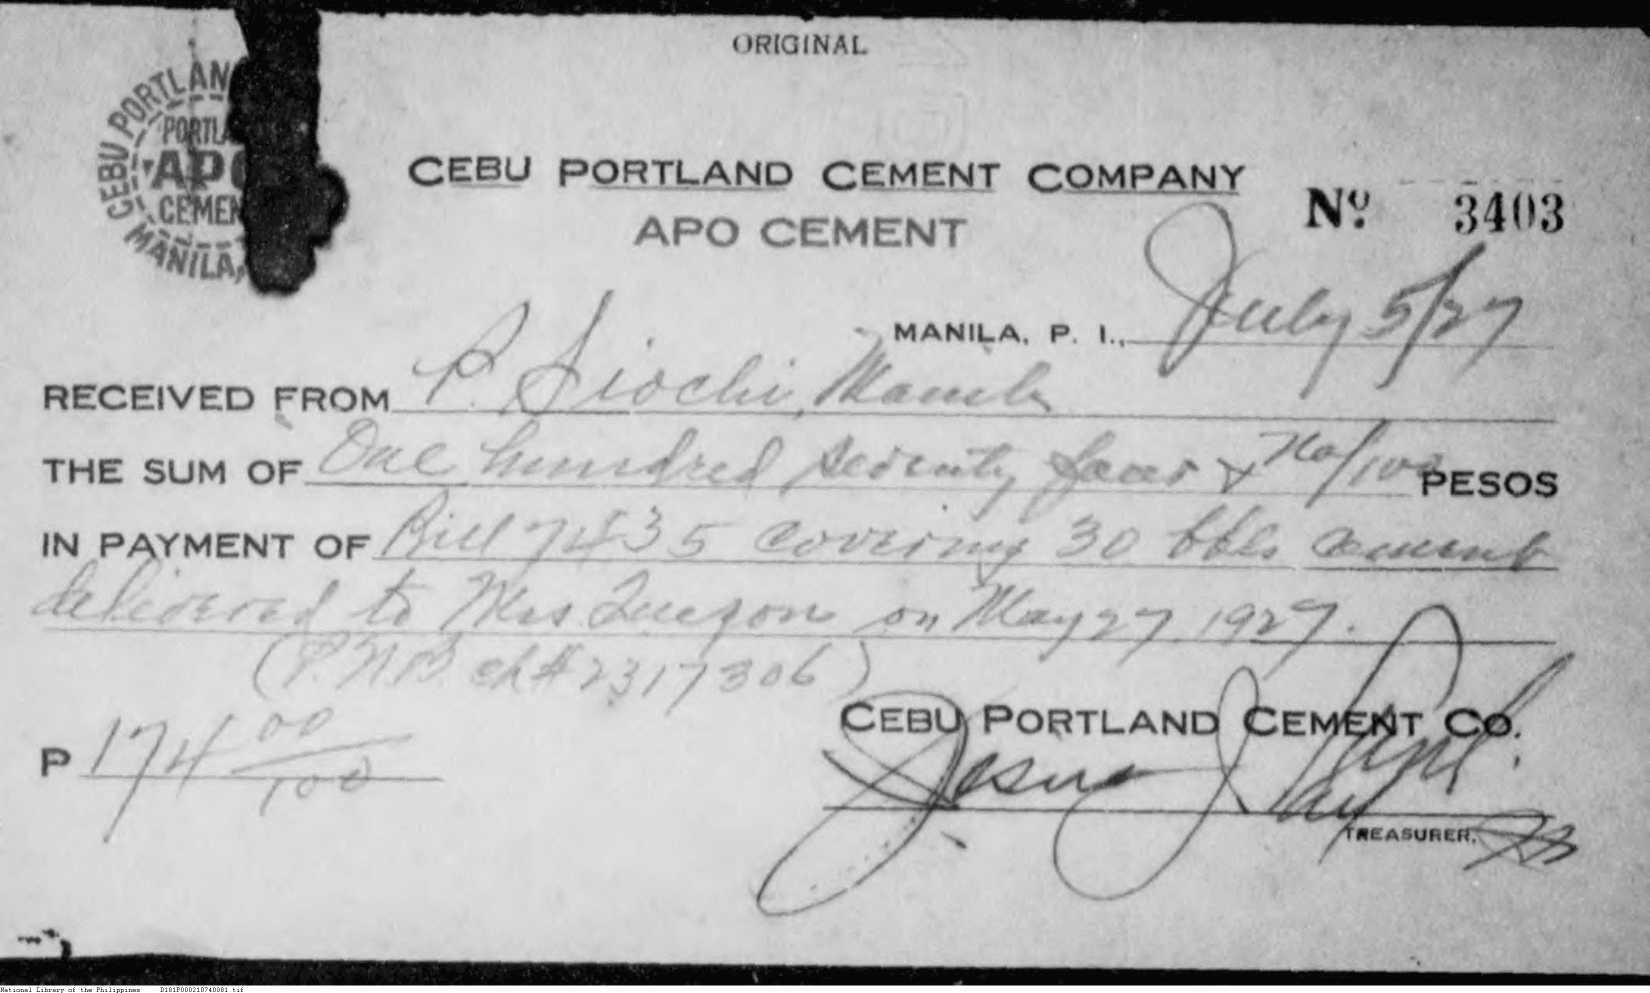 ORIGINAL
CEBU PORTLAN
PORTLA
APO
CEMEN
MANILA,
CEBU PORTLAND CEMENT COMPANY
APO CEMENT
Nº 3403
MANILA, P. I., July 5/27
RECEIVED FROM P. Siochi, Manila
THE SUM OF One hundred seventy four & no/100 PESOS
IN PAYMENT OF Bill 7435 covering 30 bbls cement
delivered to Mrs Quezon on May 27, 1927.
(P.N.B. ch# 2317306)
CEBU PORTLAND CEMENT CO.
P 174 00/100
TREASURER.
National Library of the Philippines D101P000210740001.tif